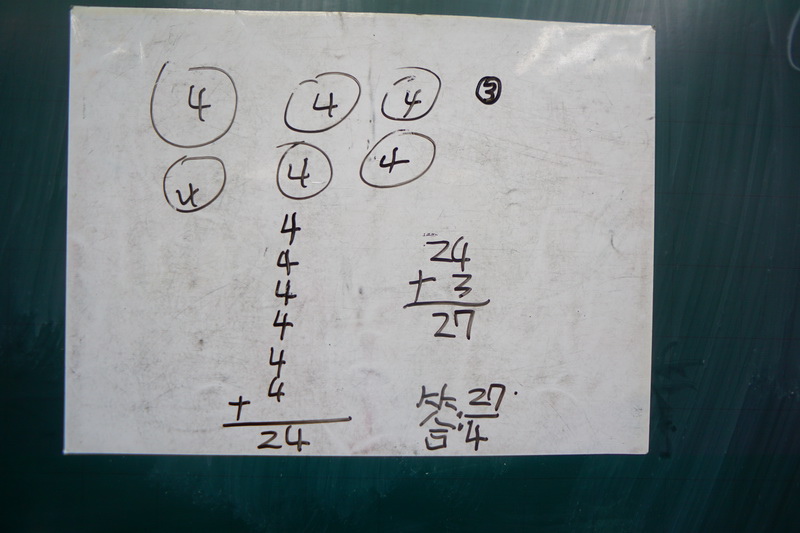 4 4 4 3
4 4 4
4
4
4
4
4
+ 4
24
24
+ 3
27
答: 27
4